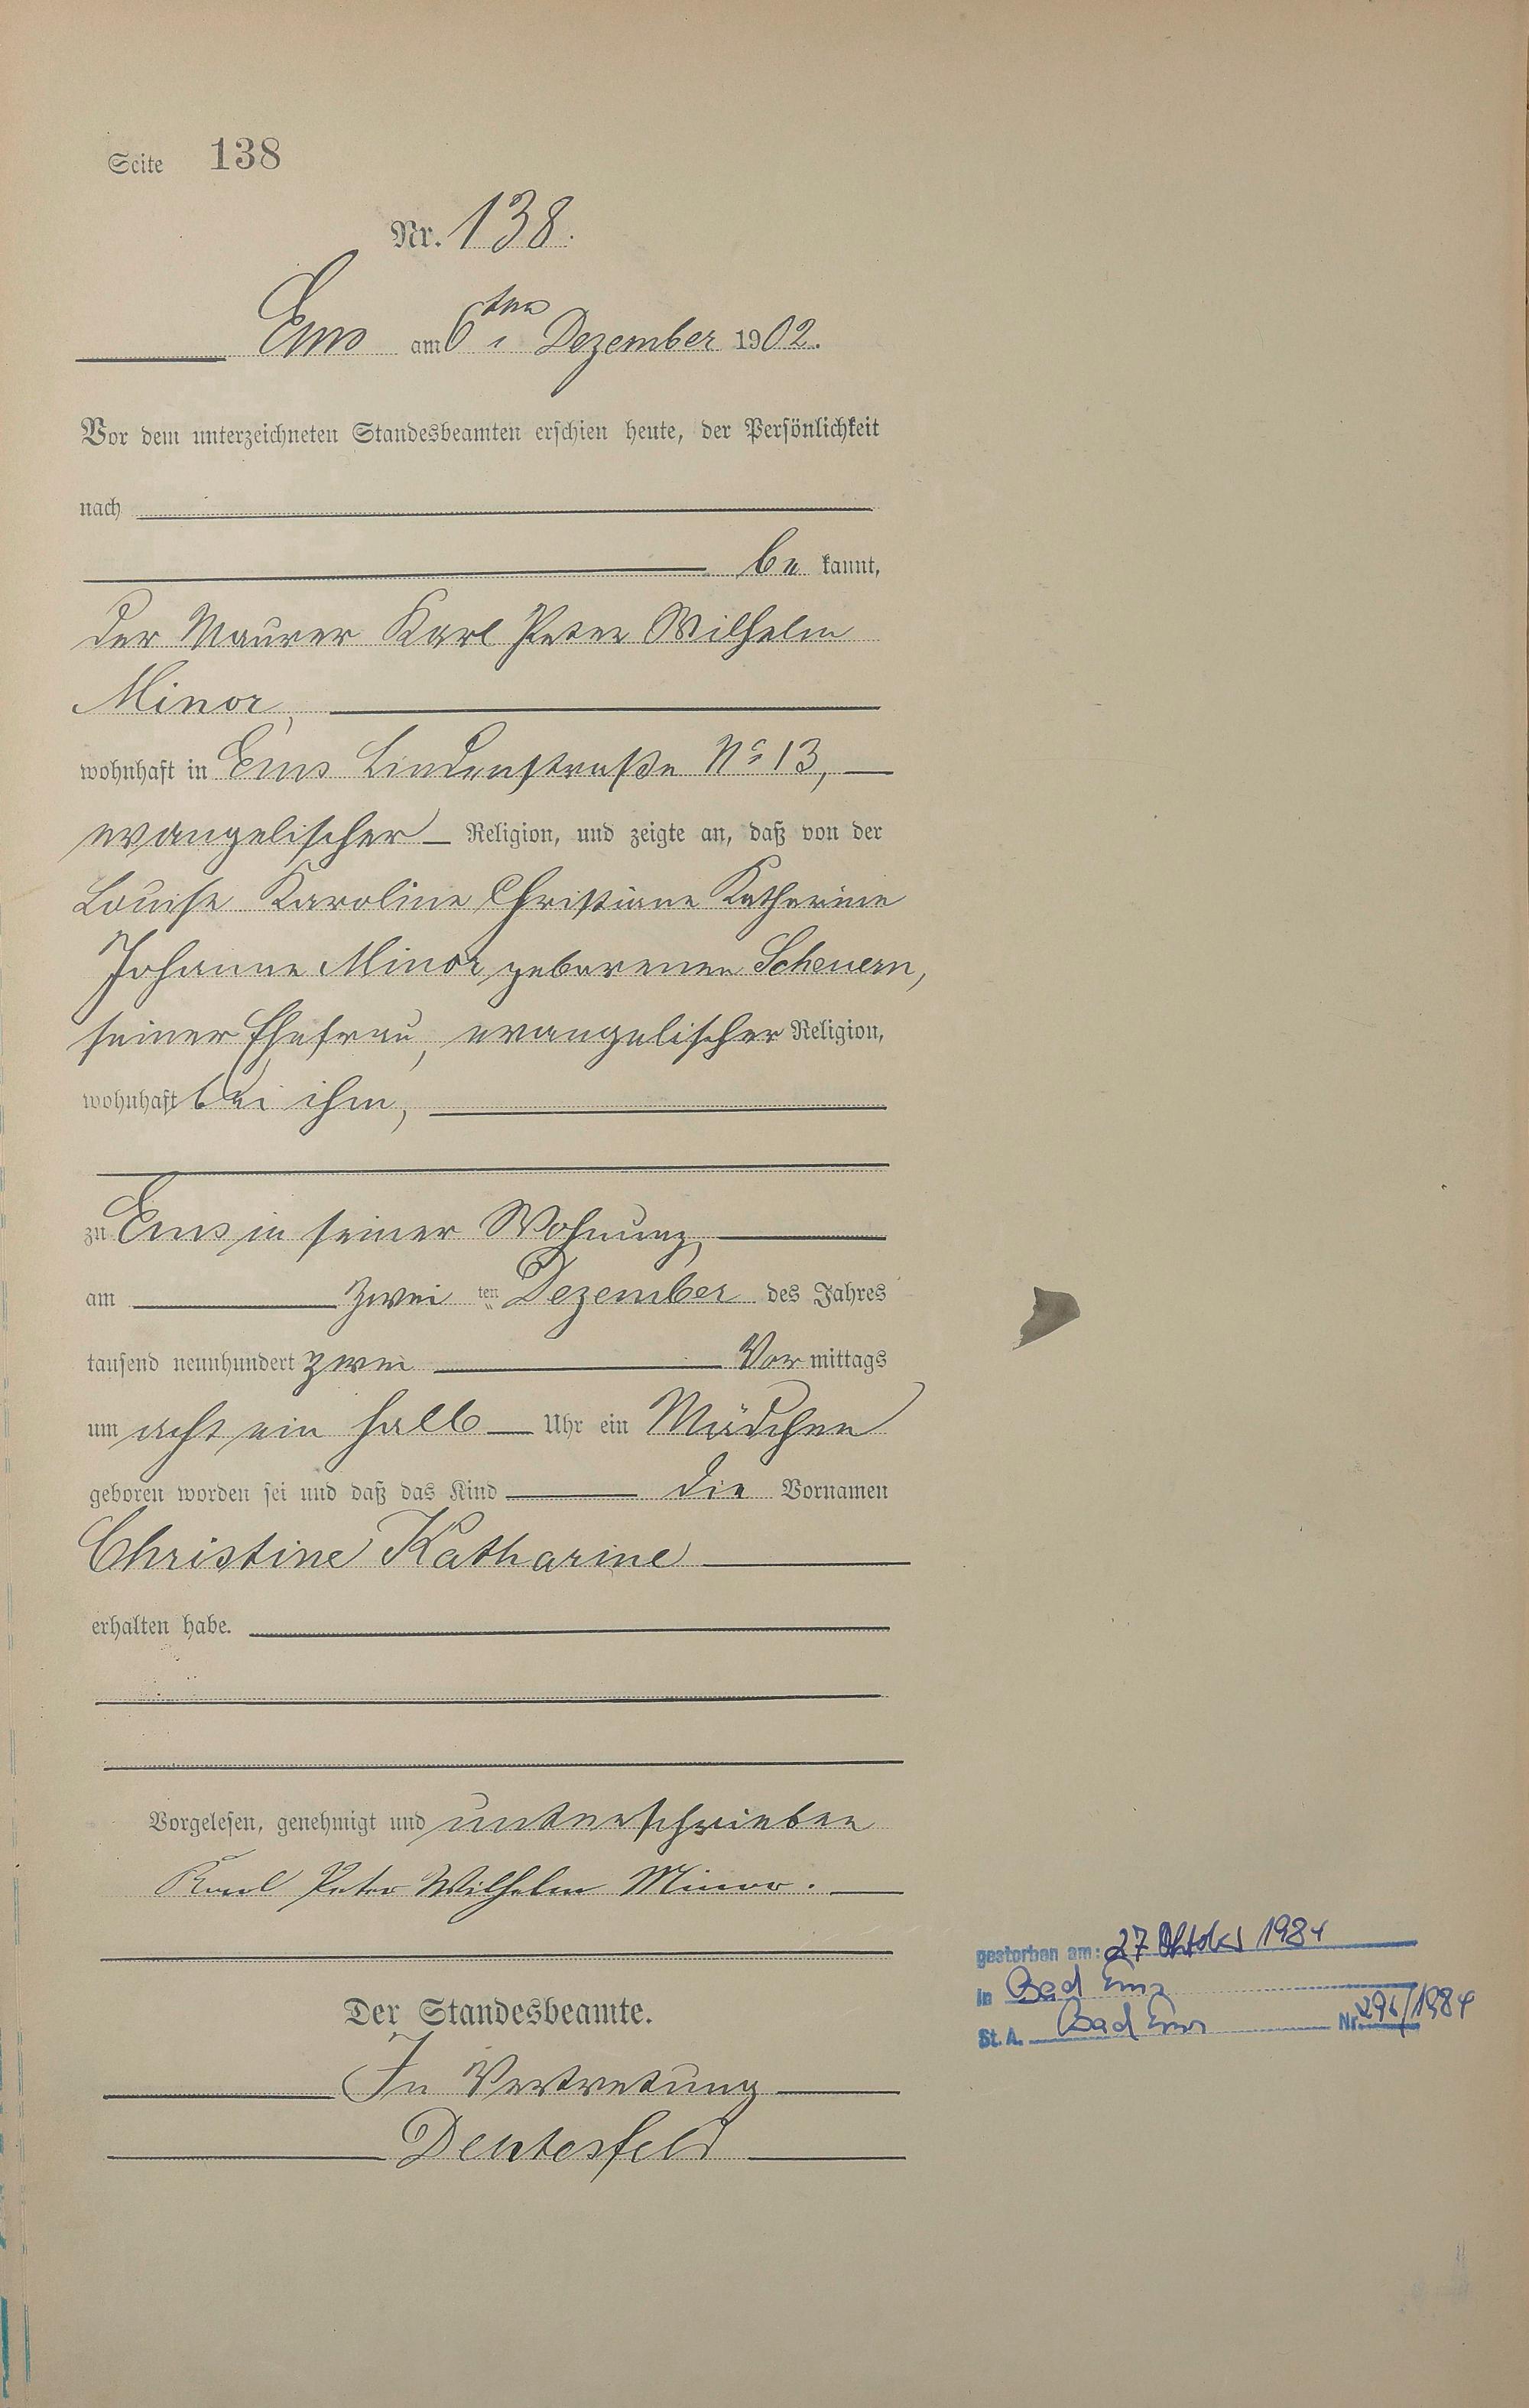 Seite 138
Nr. 138.
Ems am 6ten Dezember 1902.
Vor dem unterzeichneten Standesbeamten erschien heute, der Persönlichkeit
nach
be kannt,
der Maurer Karl Peter Wilhelm
Minor,
wohnhaft in Ems Lindenstraße No 13,
evangelischer Religion, und zeigte an, daß von der
Louise Karoline Christiane Katharine
Johanne Minor geborenen Scheuern,
seiner Ehefrau, evangelischer Religion,
wohnhaft bei ihm,
zu Ems in seiner Wohnung,
am zwei ten Dezember des Jahres
tausend neunhundert zwei Vor mittags
um acht ein halb Uhr ein Mädchen
geboren worden sei und daß das Kind die Vornamen
Christine Katharine
erhalten habe.
Vorgelesen, genehmigt und unterschrieben
Karl Peter Wilhelm Minor.
Der Standesbeamte.
In Vertretung
gestorben am: 27 Oktober 1984
in Bad Ems
St. A. Bad Ems Nr. /1984